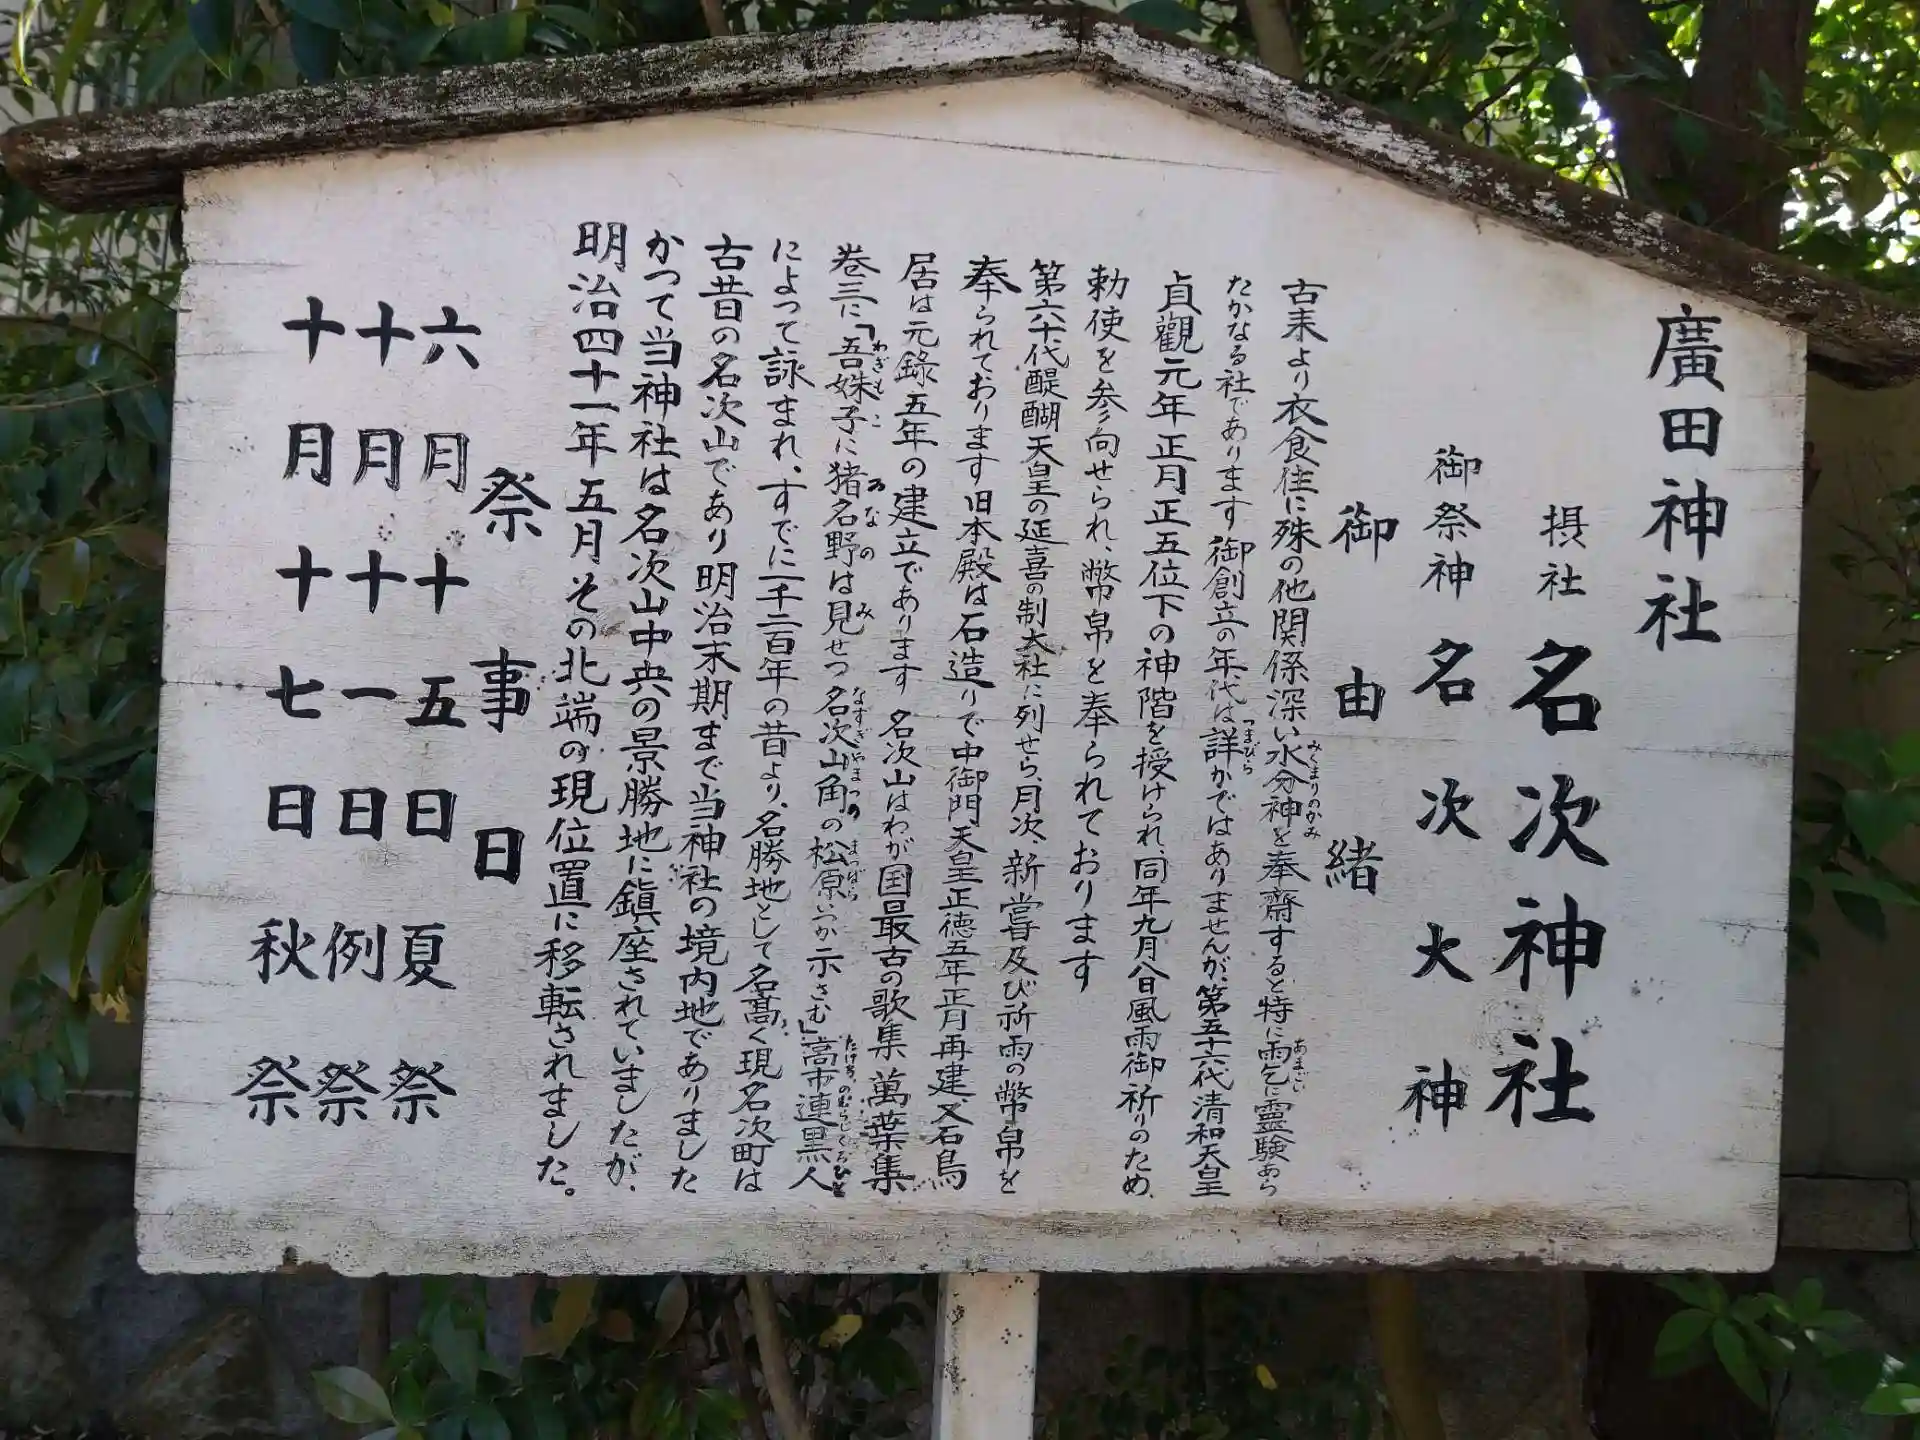 廣田神社
摂社 名次神社
御祭神 名次大神
御由緒
古来より衣食住に殊の他関係深い水分神を奉齋すると特に雨乞に霊験あら
たかなる社であります御創立の年代は詳かではありませんが、第五十六代清和天皇
貞観元年正月正五位下の神階を授けられ、同年九月八日風雨御祈りのため、
勅使を参向せられ、幣帛を奉られております
第六十代醍醐天皇の延喜の制大社に列せら、月次、新嘗及び祈雨の幣帛を
奉られております旧本殿は石造りで中御門天皇正徳五年正月再建又石鳥
居は元録五年の建立であります 名次山はわが国最古の歌集萬葉集
巻三に「吾姝子に猪名野は見せつ名次山角の松原いつか示さむ」高市連黒人
によって詠まれ、すでに一千二百年の昔より、名勝地として名高く現名次町は
古昔の名次山であり明治末期まで当神社の境内地でありました
かつて当神社は名次山中央の景勝地に鎮座されていましたが、
明治四十一年五月その北端の現位置に移転されました。
祭事日
六月十五日 夏祭
十月十一日 例祭
十月十七日 秋祭